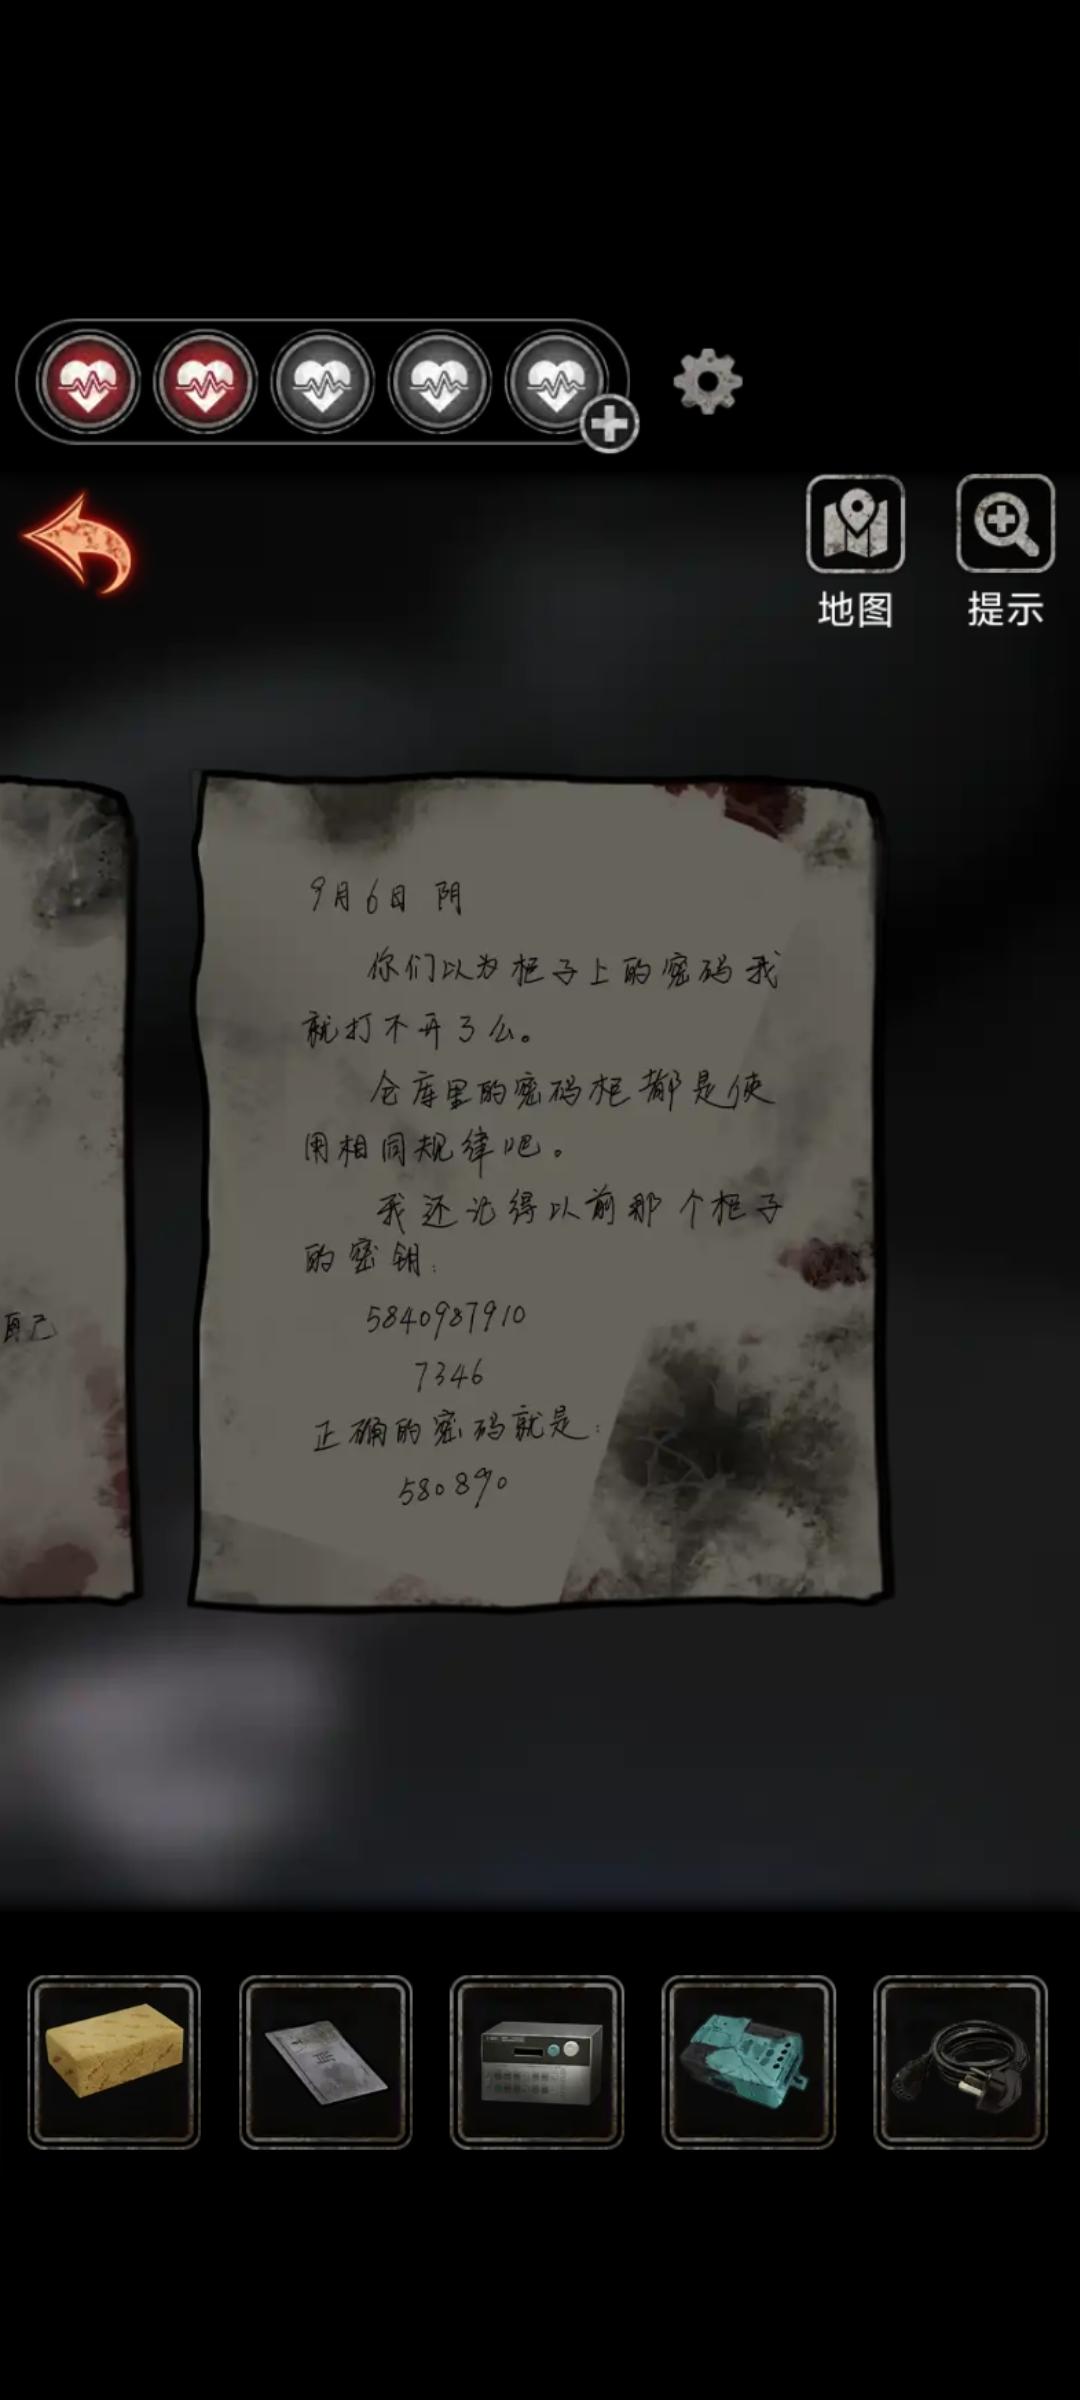 地图
提示
9月6日 阴
你们以为柜子上的密码我
就打不开了么。
仓库里的密码柜都是使
用相同规律吧。
我还记得以前那个柜子
的密钥：
5840987910
7346
正确的密码就是：
580890
自己